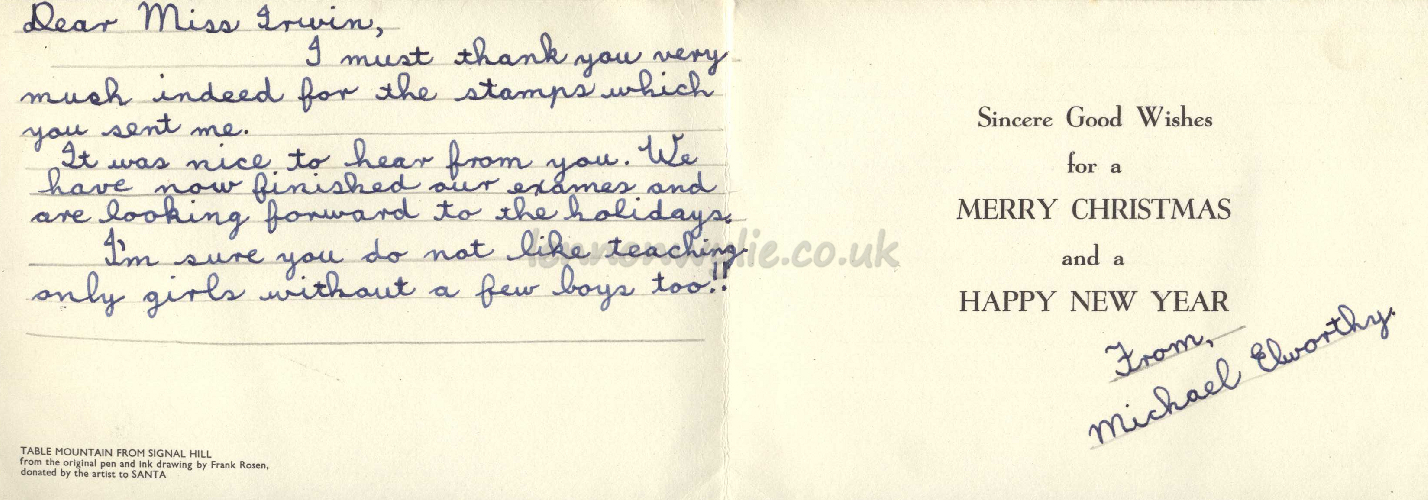 Dear Miss Irwin,
I must thank you very
much indeed for the stamps which
you sent me.
It was nice to hear from you. We
have now finished our exames and
are looking forward to the holidays.
I'm sure you do not like teaching
only girls without a few boys too!!
TABLE MOUNTAIN FROM SIGNAL HILL
from the original pen and ink drawing by Frank Rosen,
donated by the artist to SANTA
Sincere Good Wishes
for a
MERRY CHRISTMAS
and a
HAPPY NEW YEAR
From,
Michael Elworthy.
lennonwylie.co.uk